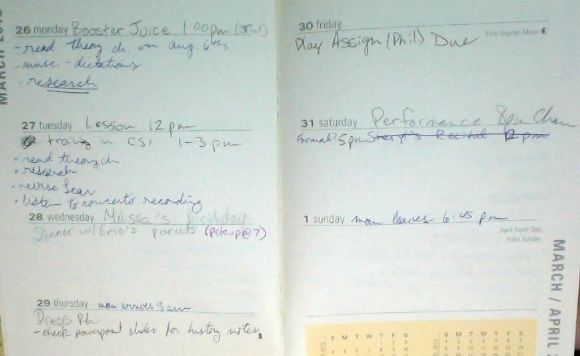 MARCH 2012
26 monday Booster Juice 1:00pm (JW)
- read theory ch on aug 6ths
- music - dictations
- research
27 tuesday Lesson 12 pm
training in CSI 1-3 pm
• read theory ch.
• research
• revise Sean
• listen to concerto recording
28 wednesday Melissa's birthday
Dinner w/Emo's parents (pickup@7)
29 thursday mom arrives 9am
Dress Rh
- check powerpoint slides for history notes
30 friday
First Quarter Moon
Play Assign (Phil) Due
31 saturday Performance 8pm
Formal? 5pm Recital pm
1 sunday mom leaves 6:45 pm
April Fools' Day
Palm Sunday
MARCH / APRIL
S M T W T F S
S M T W T F S